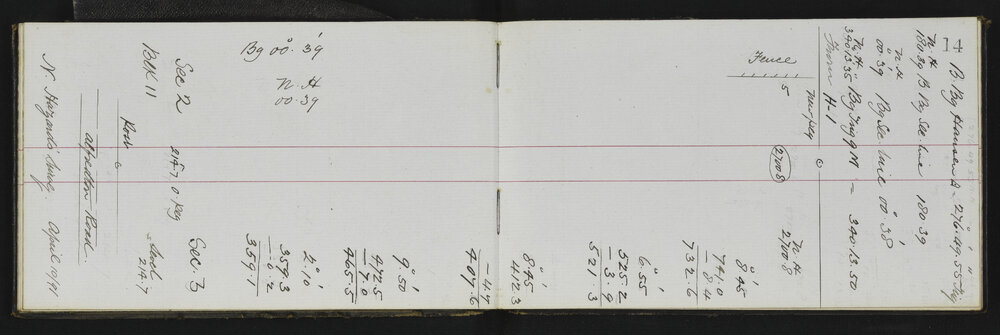 14
B. Bg Hansen A - 276.49.55
N. H
180 39 B Bg Sec line 180 39
N. H
00° 39' Bg Sec line 00° 38'
N. H
340 13 35 Bg Trig 9 M - 340.13.50
From H-1
New peg
Fence
5
27008
N. H
270 08
8° 45'
741.0
- 8.4
732.6
6° 55'
525.2
- 3.9
521.3
8° 45'
412.3
- 4.7
407.6
9° 50'
472.5
- 7.0
465.5
2° 10'
359.3
- 0.2
359.1
Bg 00° 39'
N. H
00.39
Sec 2
214.7 O Peg
Sec. 3
Blk 11
214.7
Road
alfredton Road
N. Hazard's Survey. April 19/91